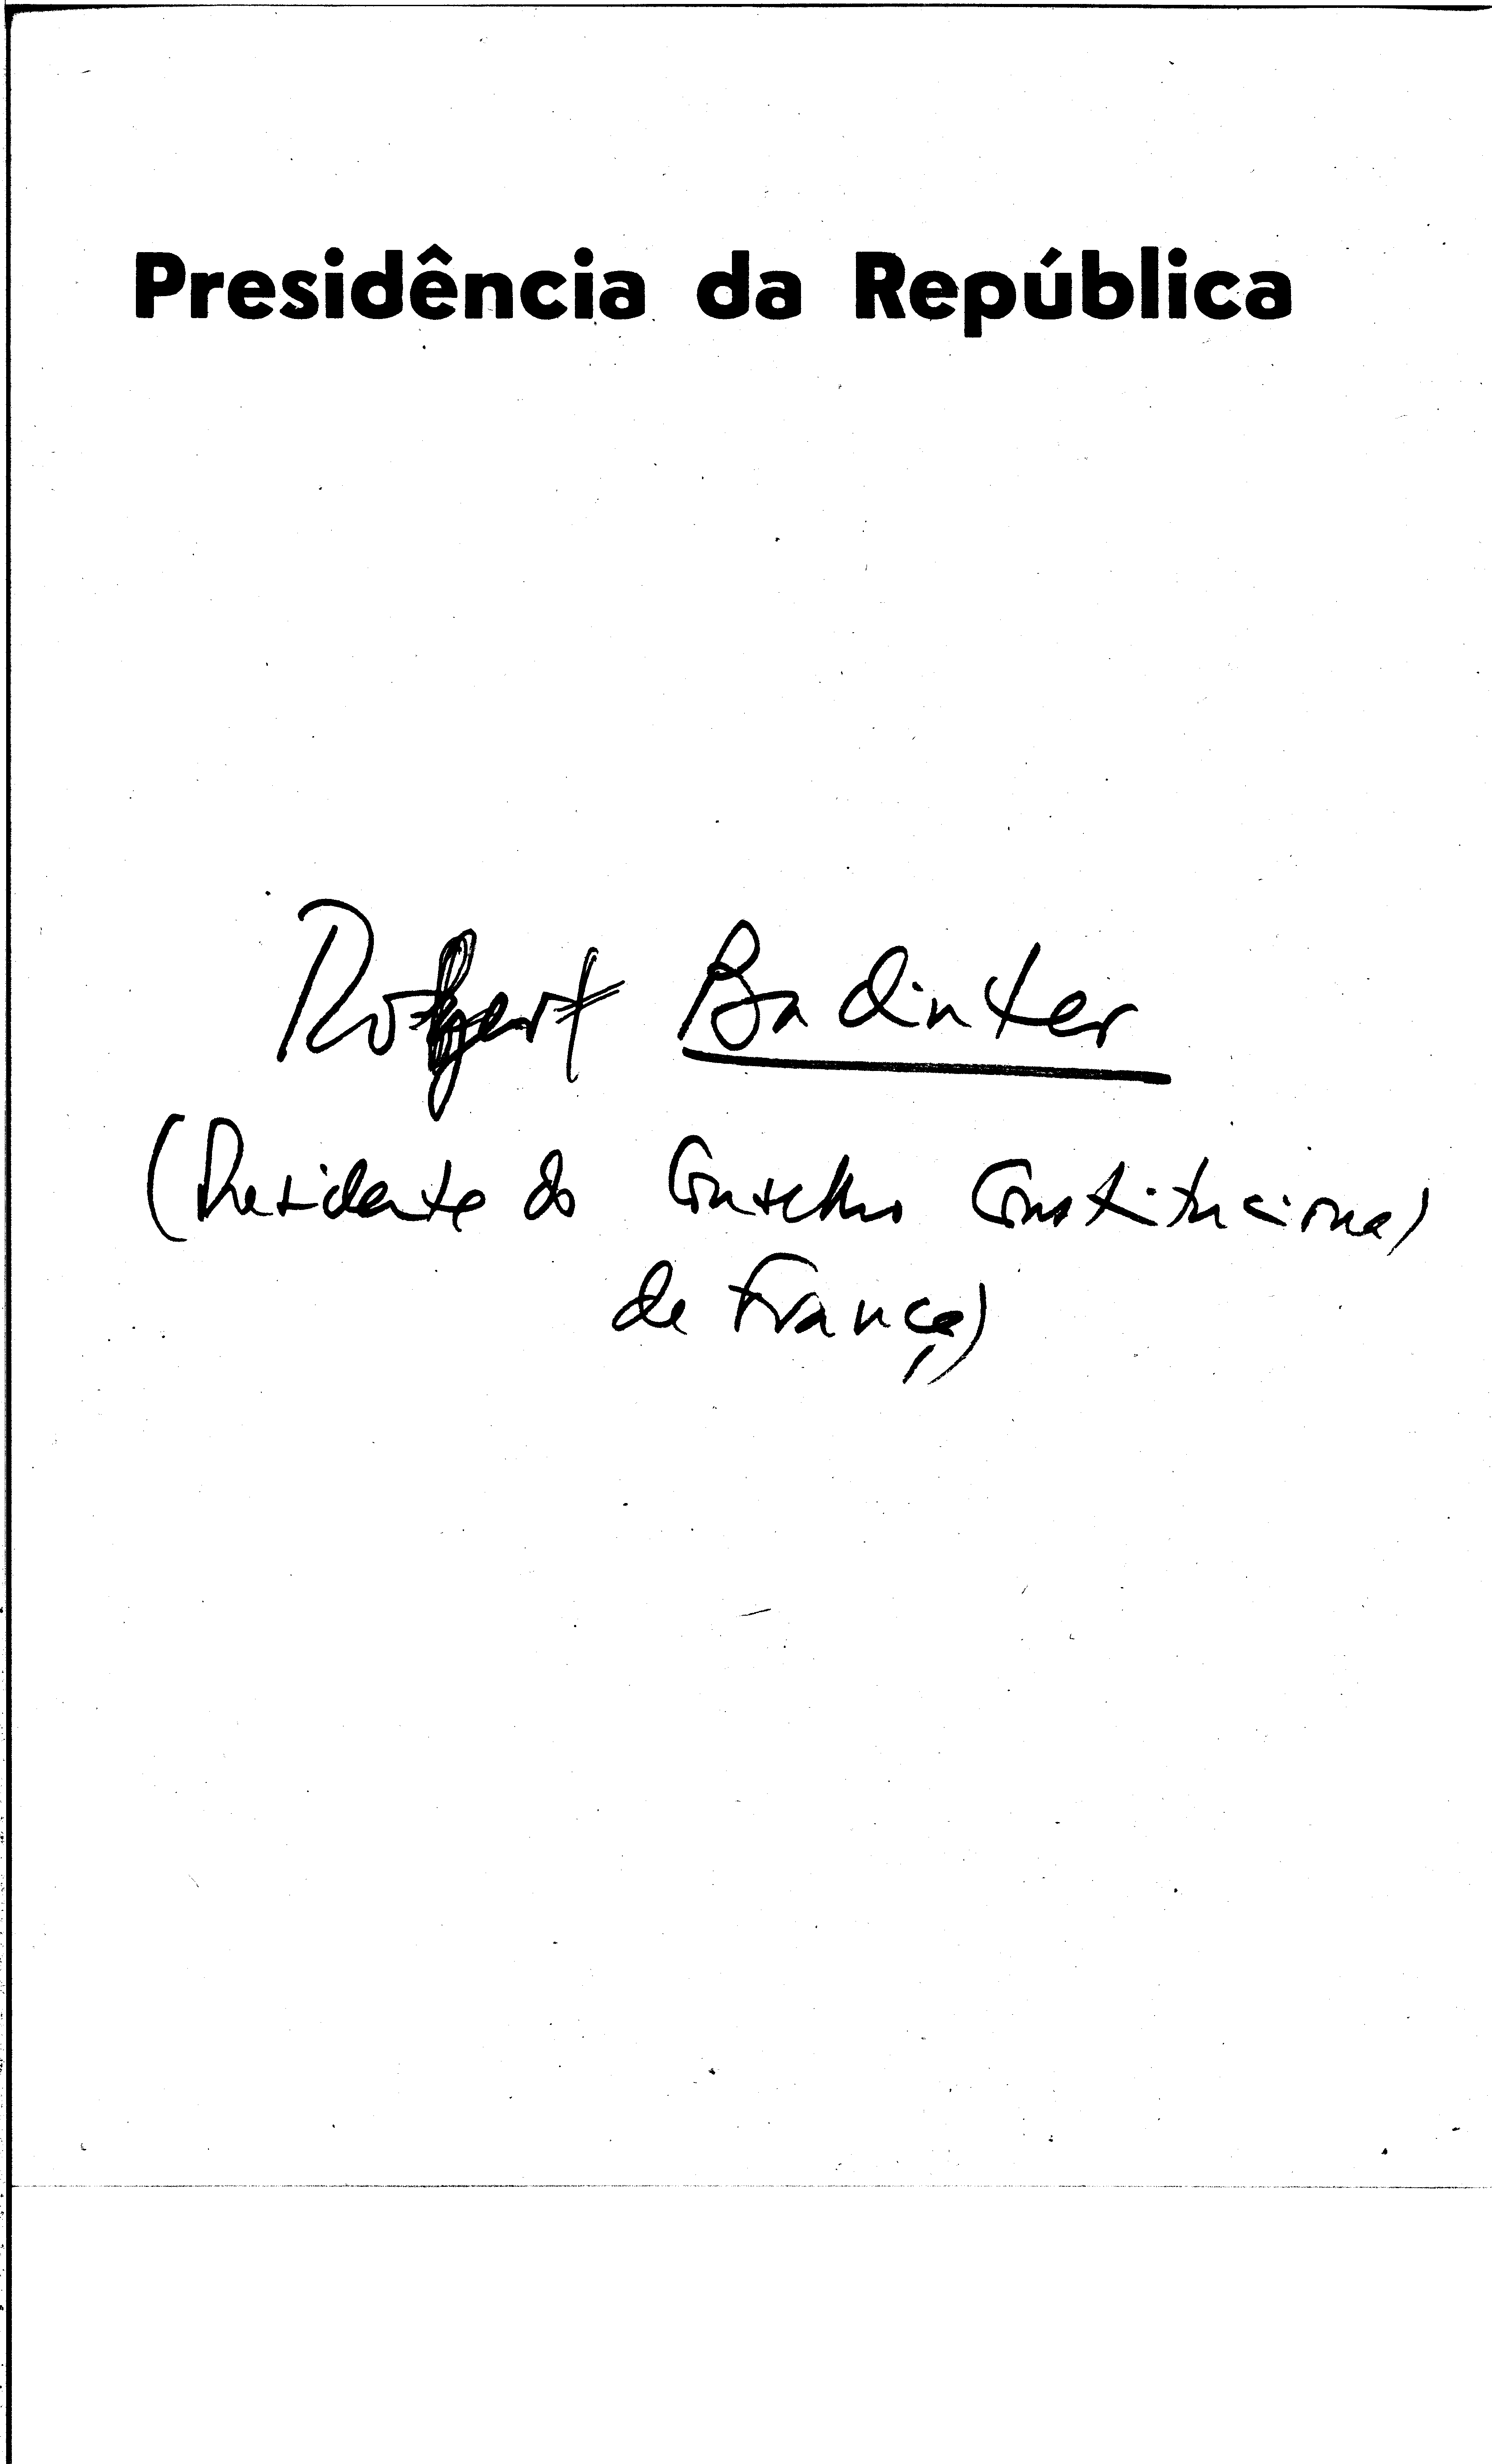 Presidência da República
Robert Badinter
(Presidente do Conselho Constitucional
de França)